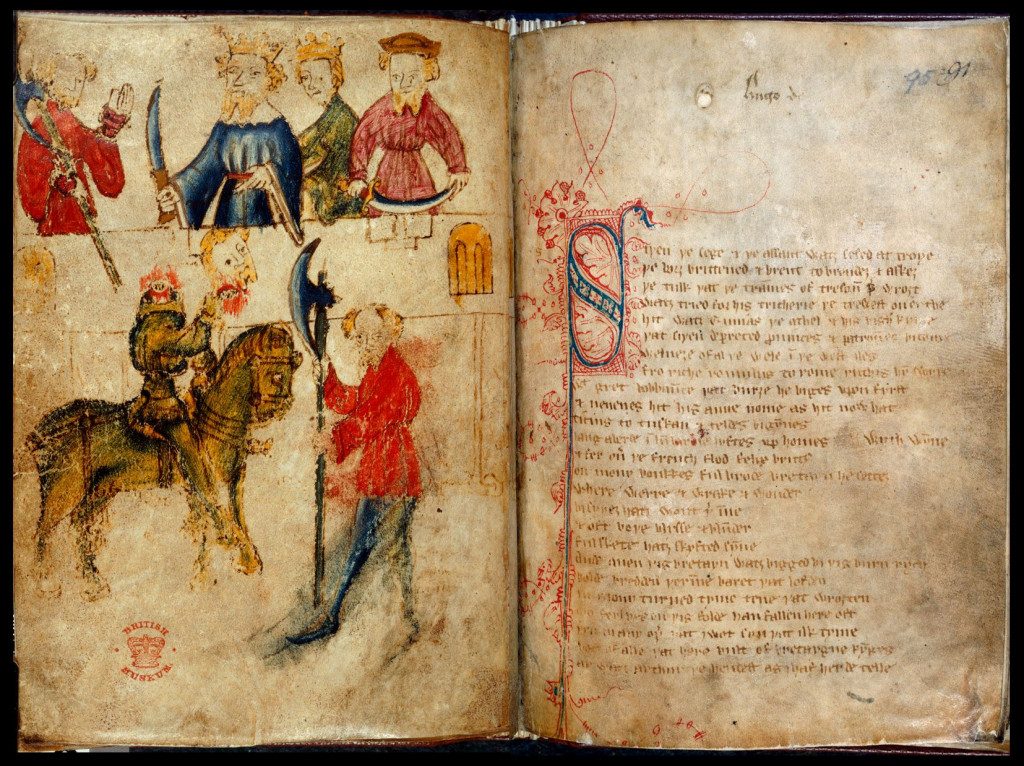 Hugo de
91
SIþen þe sege & þe assaut watz sesed at troye
þe borȝ brittened & brent to brondeȝ & askez
þe tulk þat þe trammes of tresoun þ wroȝt
watz tried for his tricherie þe trewest on erthe
hit watz ennias þe athel & his highe kynde
þat siþen depreced prouinces & patrounes bicome
welneȝe of al þe wele ī þe west iles
fro riche romulus to rome ricchis hym swyþe
gret bobbaūce þat burȝe he biges vpon fyrst
& neuenes hit his aune nome as hit now hat
ticius to tuskan & teldes bigȳnes
langaberde ī lumbardie lyftes vp homes wyth wȳne
& fer oū þe french flod felix brutus
on mony bonkkes ful brode bretayn he settez
where werre & wrake & wonder
bi syþez hatz wont þ īne
& oft boþe blysse & blūder
ful skete hatz skyfted sȳne
Ande quen þis bretayn watz bigged bi þis burn rych
bolde bredden þerīne baret þat lofden
in mony turned tyme tene þat wroȝten
ferlyes on þis folde han fallen here oft
þen in any oþ þat I wot syn þat ilk tyme
bot of alle þat here bult of bretaygne kynges
ay watz arthur þe hendest as I haf herde telle
BRITISH
MUSEUM